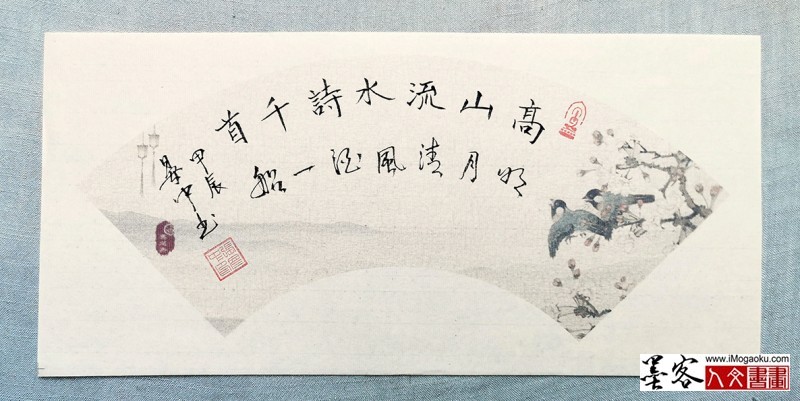 高山流水詩千首
明月清風酒一船
甲辰
昇中书
墨客
www.iMogaoku.com
人文書畫